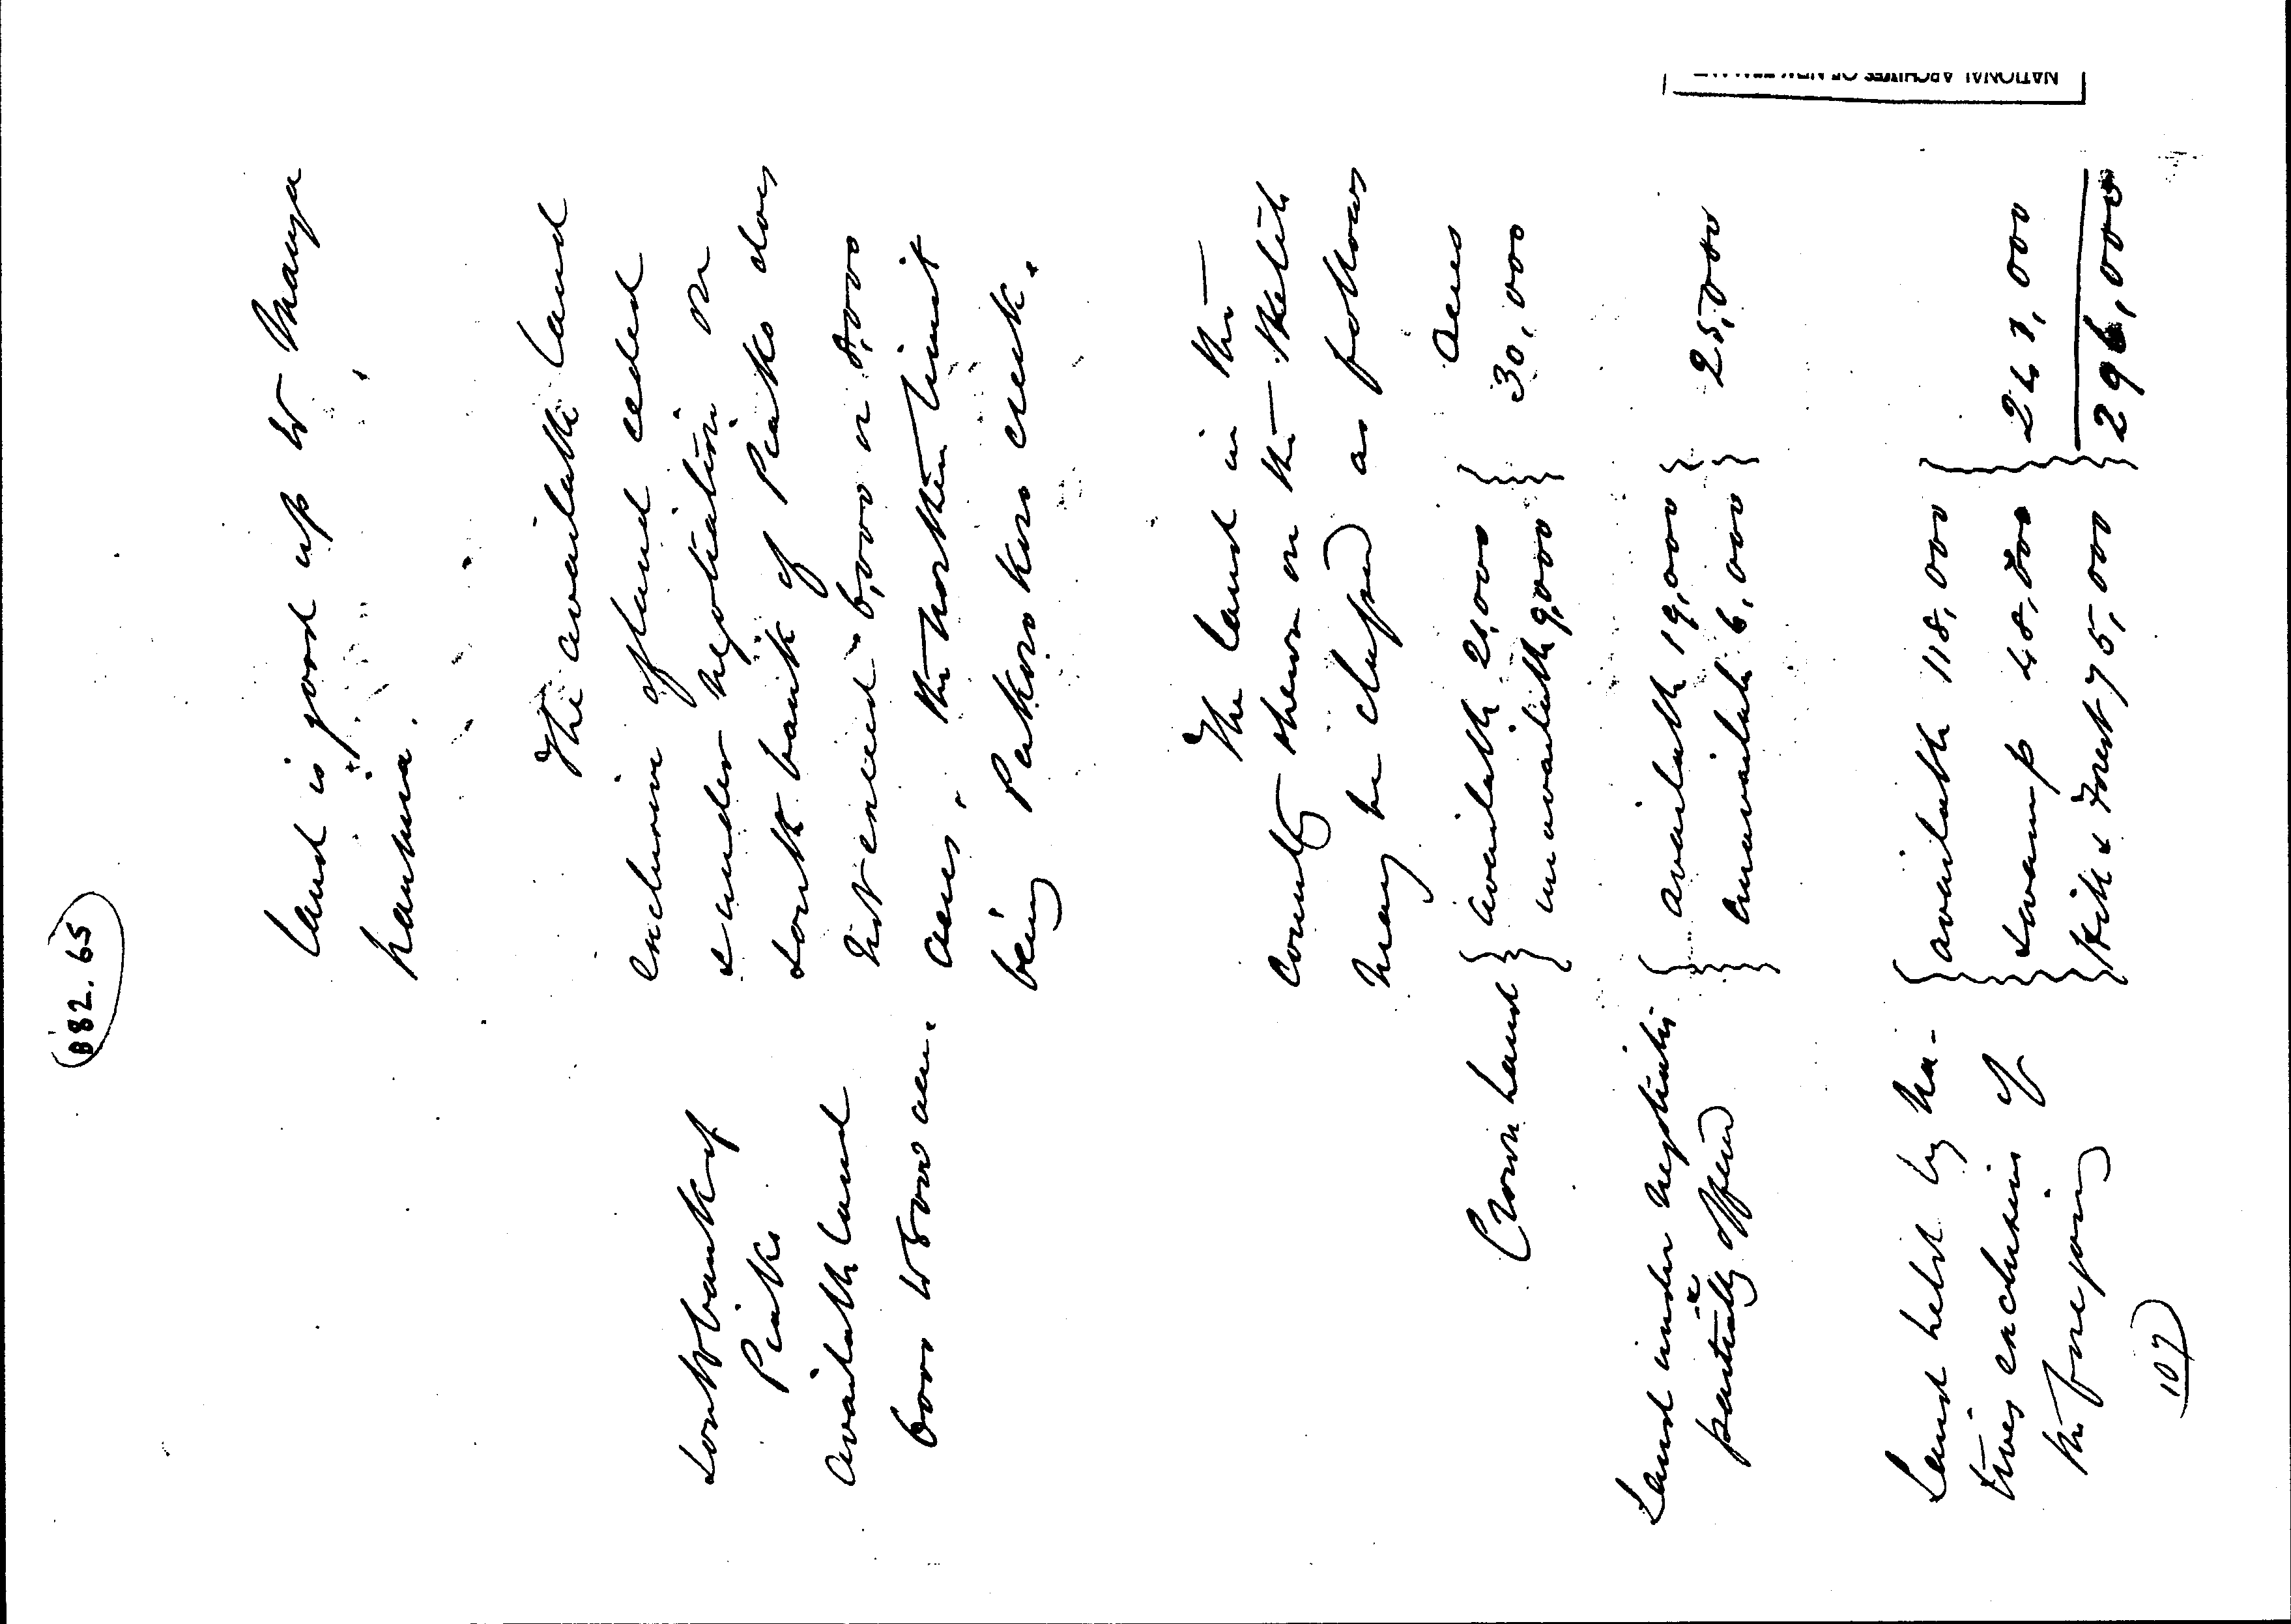 B82.65
land is good up to Manga
hauhiria.
The available land
exclusive of land ceded
& under negotiation on
South bank of Piako does
not exceed 6,000 or 8,000
acres, the northern limit
being creek.
South bank of
Piako
available land
6000 to 8000 acr.
The land in the
County shewn on the sketch
may be classed as follows
Acres
Crown land } available 21,000 } 30,000
unavailable 9,000
Land under negotiation } available 19,000 } 25,000
& partially offered unavailable 6,000
Land held by Na- } available 118,000
tives exclusive of swamp 48,000 } 241,000
the foregoing Hill & Forest 75,000 296,000
107
NATIONAL ARCHIVES OF NEW